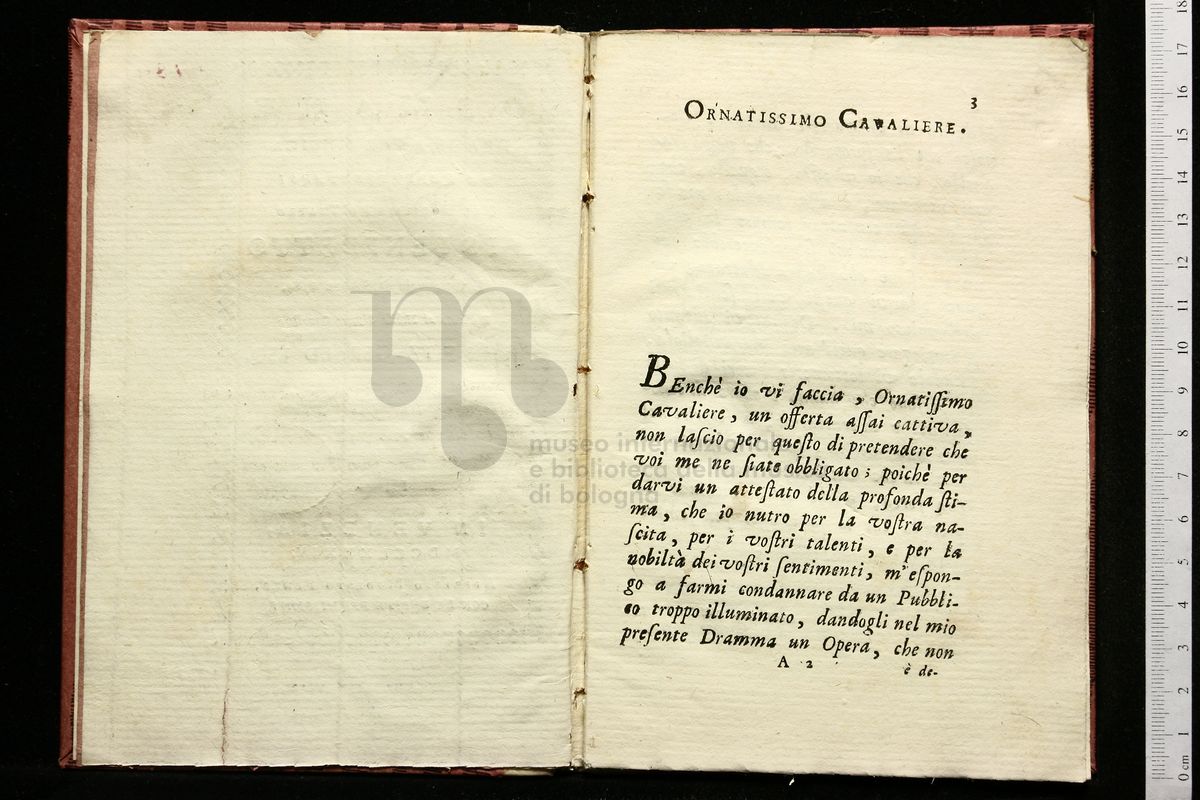 3
ORNATISSIMO CAVALIERE.
BEnchè io vi faccia, Ornatiſſimo
Cavaliere, un offerta aſſai cattiva,
non laſcio per queſto di pretendere che
voi me ne ſiate obbligato; poichè per
darvi un atteſtato della profonda ſti-
ma, che io nutro per la voſtra na-
ſcita, per i voſtri talenti, e per la
nobiltà dei voſtri ſentimenti, m'eſpon-
go a farmi condannare da un Pubbli-
co troppo illuminato, dandogli nel mio
preſente Dramma un Opera, che non
A 2
è de-
museo internazionale
e biblioteca della musica
di bologna
0 cm 1 2 3 4 5 6 7 8 9 10 11 12 13 14 15 16 17 18